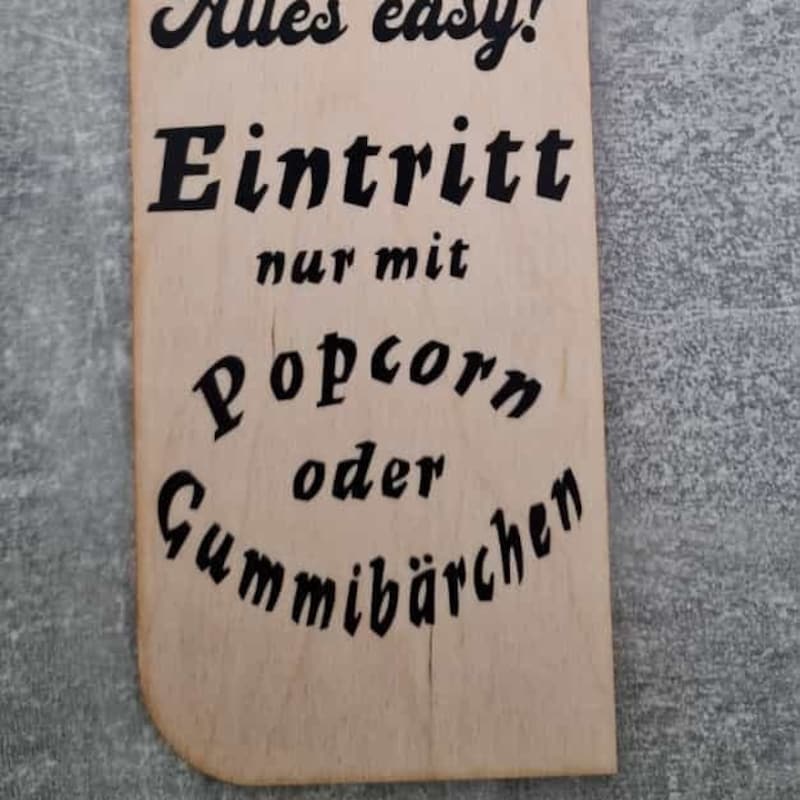 Alles easy!
Eintritt
nur mit
Popcorn
oder
Gummibärchen